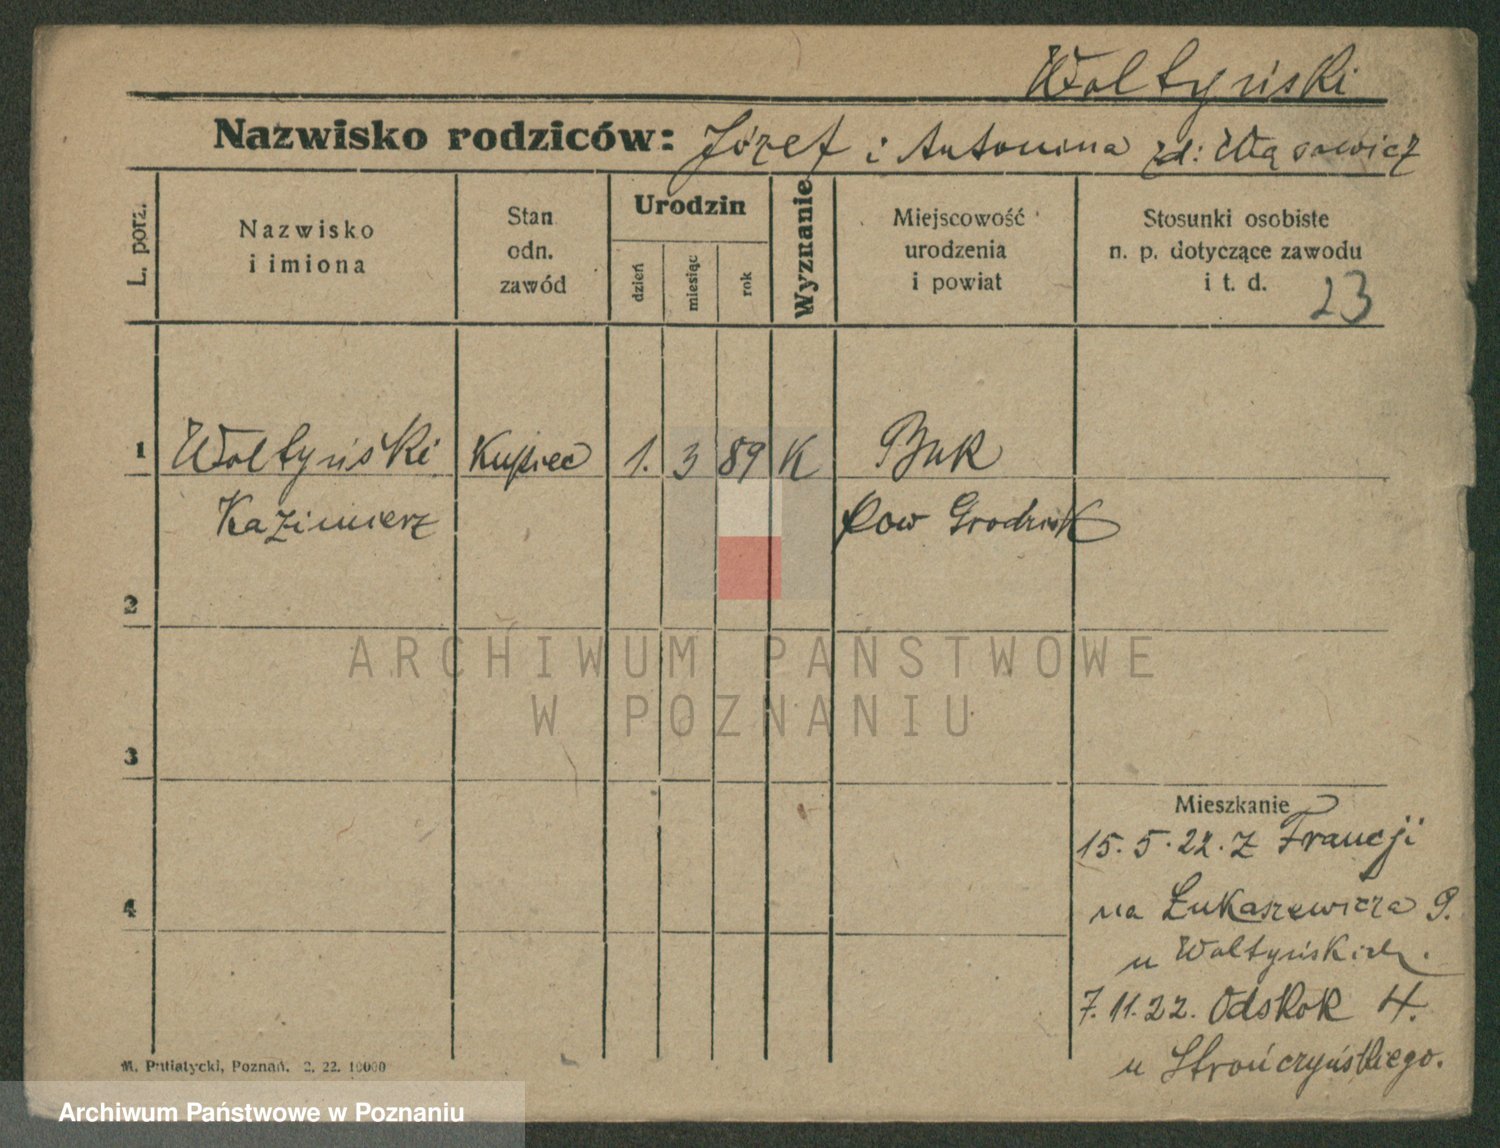 Woltyński
Nazwisko rodziców: Józef i Antonina zd: Wąsowicz
L. porz.
Nazwisko
i imiona
Stan
odn.
zawód
Urodzin
dzień
miesiąc
rok
Wyznanie
Miejscowość
urodzenia
i powiat
Stosunki osobiste
n. p. dotyczące zawodu
i t. d.
23
1 Woltyński Kupiec 1. 3 89 K Buk
Kazimierz Pow Grodzisk
2
3
4
Mieszkanie
15.5.22. z Francji
na Łukaszewicza 9.
u Woltyńskich.
7.11.22. Odskok 4.
u Strończyńskiego.
M. Putiatycki, Poznań. 2. 22. 10000
ARCHIWUM PAŃSTWOWE
W POZNANIU
Archiwum Państwowe w Poznaniu